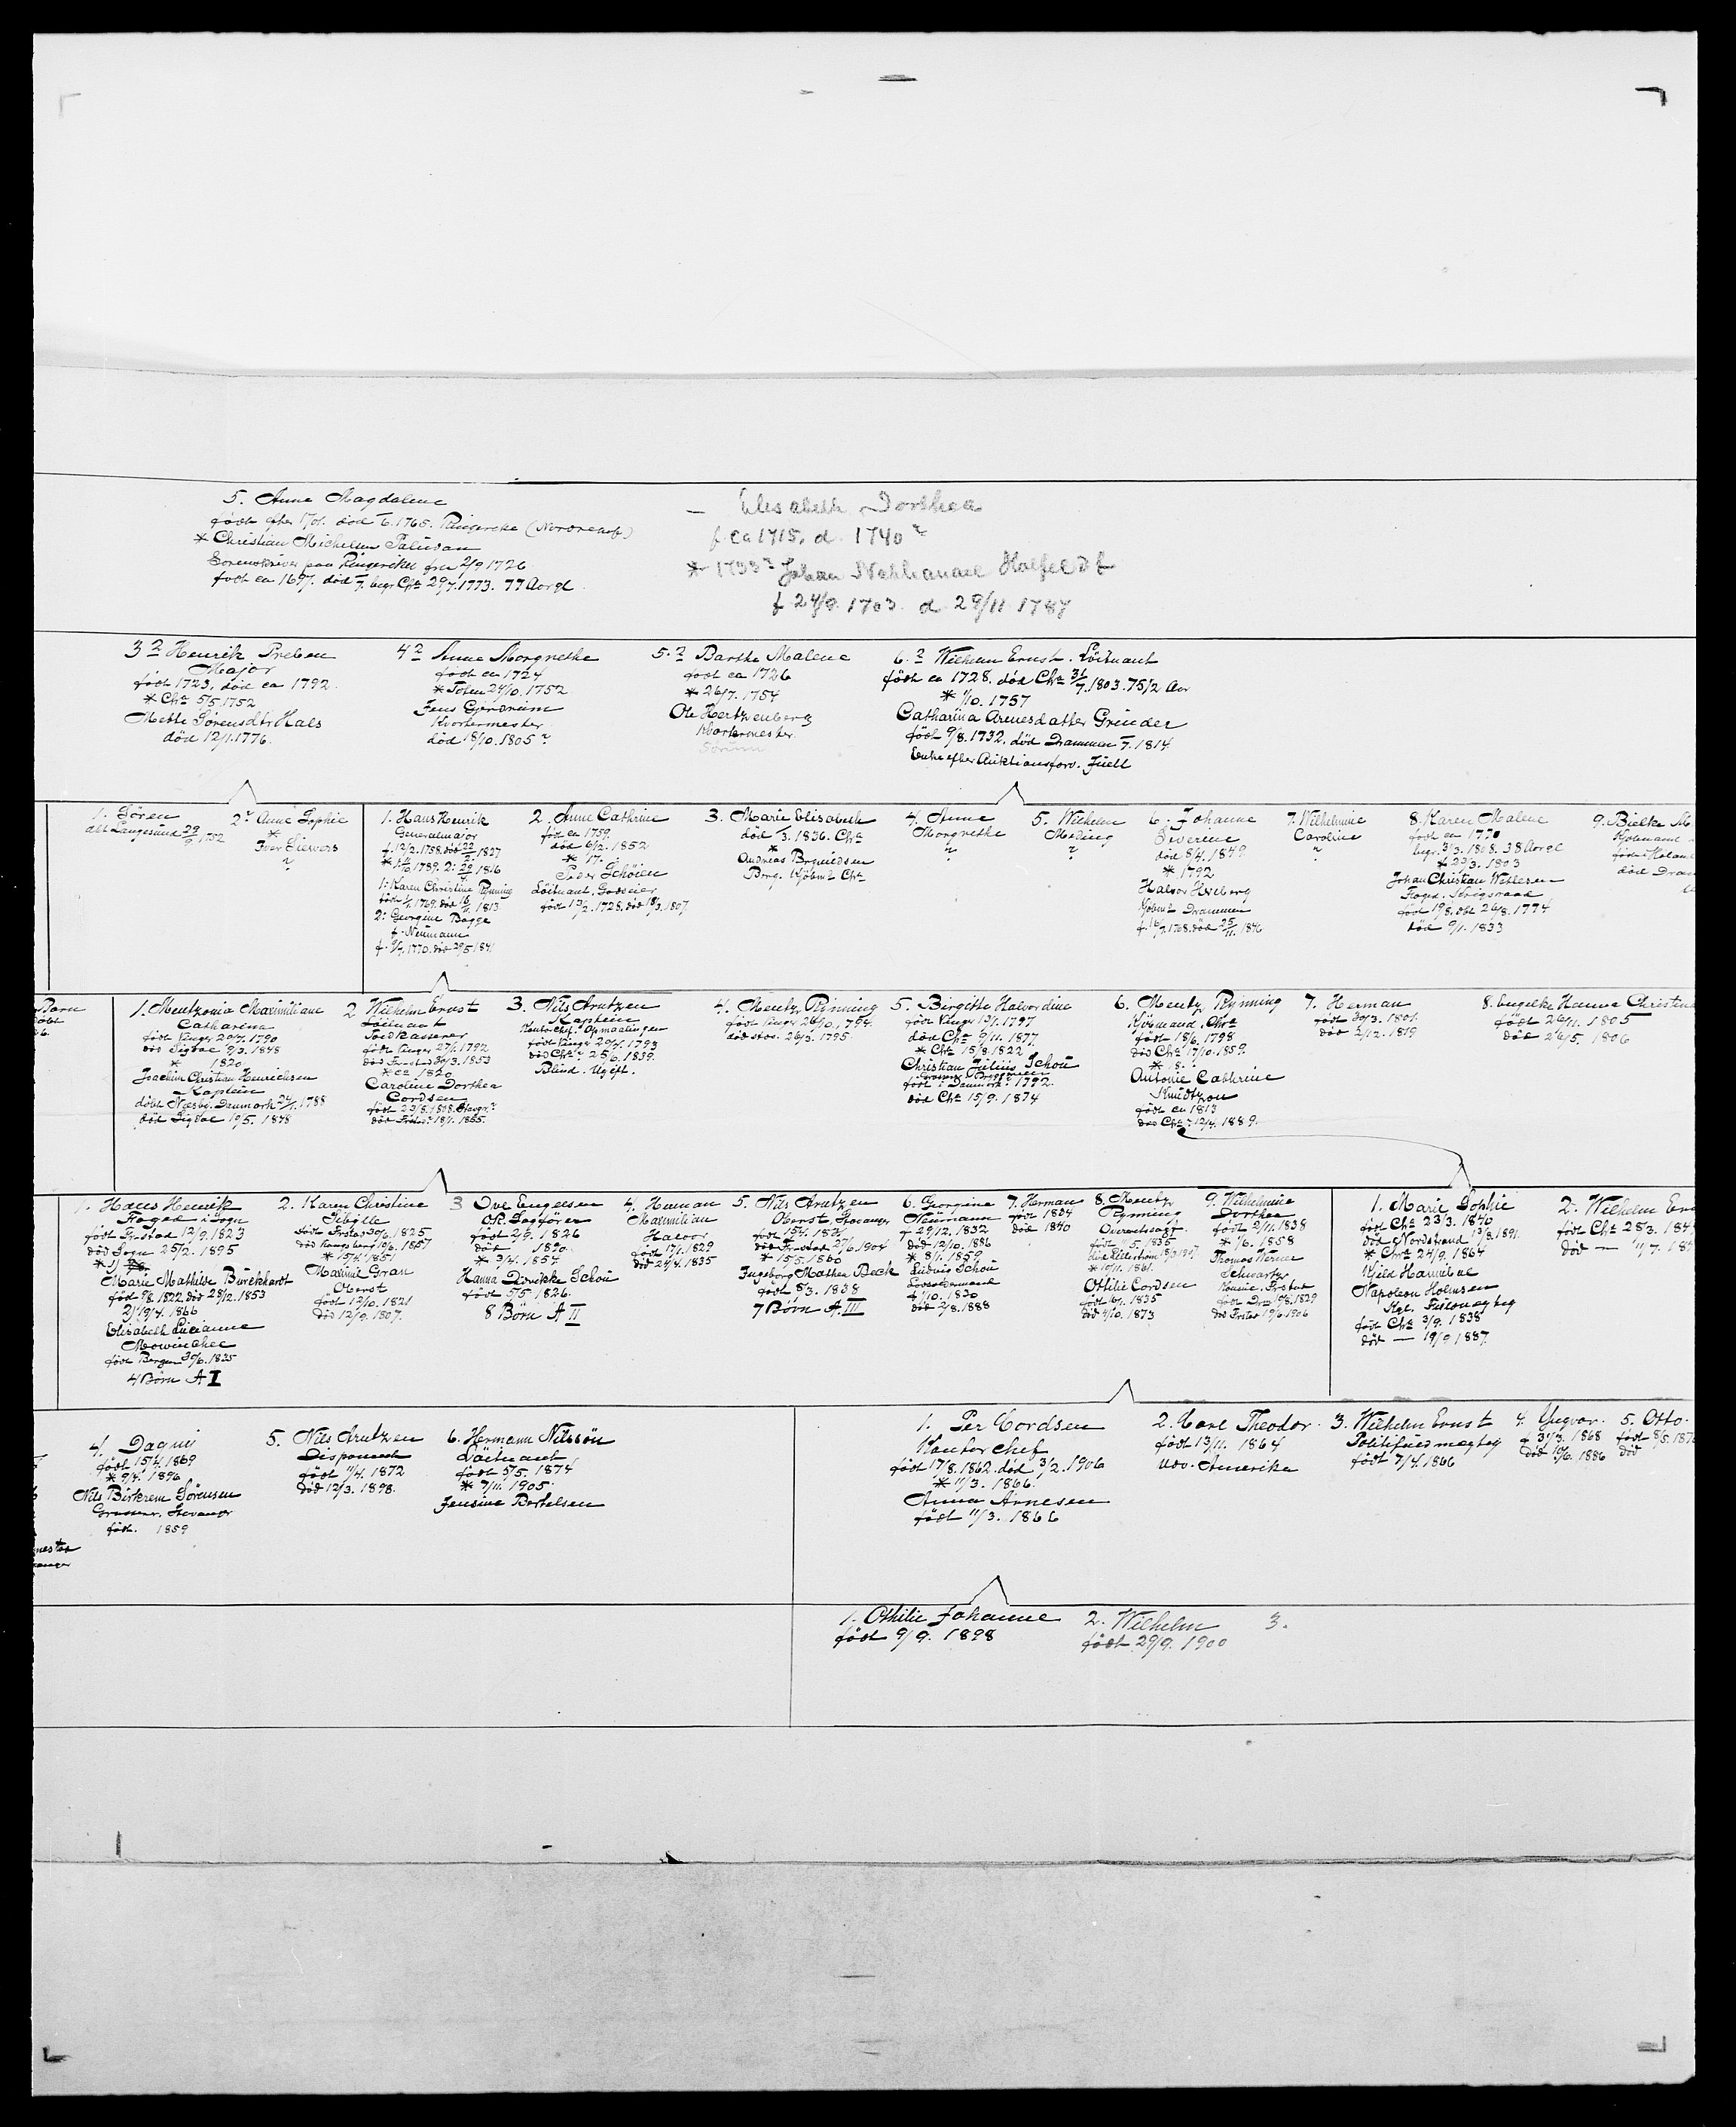 5. Anne Magdalene
født efter 1701. død 6.1765. Ringerike
* Christian Michelsen Paludan
Sorenskriver paa Ringerike fra 2/9 1726
født ca 1697. død begr. Chra 29/7.1773. 77 Aar gl.
— Elisabeth Dorthea
f. ca 1715, d. 1740 ?
* 1733 ? Johan Nathanael Holfeldt
f 24/9. 1703. d. 29/11 1787
3? Henrik Preben
Major
født 1723, død ca 1792.
* Chra 5/5 1752
Mette Sørensdtr Hals
død 12/1.1776.
4? Anne Margrethe
født ca 1724
* Toten 24/10. 1752
Jens
Kvartermester
død 18/10. 1805 ?
5.? Barthe Malene
født ca 1726
* 26/7. 1754
Ole Hertzenberg
Kvartermester
Sørum
6.? Wilhelm Ernst. Løitnant
født ca 1728. død Chra 31/7.1803. 75 1/2 Aar
* 1/10. 1757
Catharina Arnesdatter Gründer
født 9/8. 1732. død Drammen 7. 1814
Enke efter Auktionsforv. Juell
1. Søren
døbt Langesund 29/9 1752
2? Anne Sophie
*
Iver Sievers
?
1. Hans Henrik
Generalmajor
f. 12/2. 1758. død 22/2. 1827
1789. 2: 1816
1: Karen Christine Rynning
født 1769. død 1813
2: Georgine Bagge
f. Neumann
1770. død 29/5 1841
2. Anne Cathrine
født ca 1759.
død 6/2. 1852
* 17.
Peder Schøien
Løitnant, Godseier
født 13/2. 1728. død 18/3. 1807
3. Marie Elisabeth
død /3. 1836. Chra
*
Andreas
Borg. Kjøbmd Chra
4. Anne
Margrethe
?
5. Wilhelm
?
6. Johanne
Severine
død 8/4. 1849
* 1792
Halvor Hoelberg
Kjøbmd Drammen
1768. død 25/11. 1846
7. Wilhelmine
Caroline
?
8. Karen Malene
født ca 1770
begr. 3/3. 1808. 38 Aar gl
* 23/3. 1803
Johan Christian Wetlesen
Foged. Krigsraad
født 19/8. døbt 26/8. 1774
død 9/1. 1833
9. Bielke M
Kjøbmand
født
død Dram
Barn
døbt
1. Mentzonia Maximiliane
Catharina
født Vinger 20/7. 1790
død Sigdal 9/3. 1848
* 1820
Joachim Christian Henrichsen
Kaptein
døbt Næsbø. Danmark 24/1. 1788
død Sigdal 19/5. 1848
2. Wilhelm Ernst
Løitnant
Toldkasserer
født Vinger 27/1. 1792
død Grstad 30/3. 1853
* ca 1820
Caroline Dorthea
Cordsen
født 23/8. 1808.
død Grstad 18/1. 1865.
3. Nils Arntzen
Kaptein
Kontorchef. Opmaalingen
født Vinger 29/4. 1793
død Chra? 25/6. 1839.
Blind. Ugift.
4. Mentz Rynning
født Vinger 24/10. 1794
død stds. 26/3. 1795
5. Birgitte Halvordine
født Vinger 13/1. 1797
død Chra 9/11. 1877.
* Chra 15/8. 1822
Christian Julius Schou
født i Danmark 1792.
død Chra 15/9. 1874
6. Mentz Rynning
Kjøbmand, Chra
født 18/6. 1798
død Chra 17/10. 1859.
* 18.
Antonie Cathrine
Knudtzon
født ca 1813
død Chra 12/4. 1889.
7. Herman
født 30/3. 1801.
død 2/12. 1819
8. Engelke Hanna Christin
født 26/11. 1805
død 26/5. 1806
1. Hans Henrik
Foged i Sogn
født Grstad 12/9. 1823
død Sogn 25/2. 1895
* 1)
Marie Mathilde Burckhardt
født 9/8. 1822. død 28/12. 1853
2) 19/4. 1866
Elisabeth Lucianne
Mowinckel
født Bergen 30/6. 1835
4 Børn A I
2. Karen Christine
Sibylle
født Grstad 30/6. 1825
død Kongsberg 10/6. 1867
* 15/4. 1851
Maximil Gran
Oberst
født 12/10. 1821
død 12/9. 1907.
3 Ove Engelsen
OR. Sagfører
født 2/9. 1826
død 1890.
* 3/4. 1854.
Hanna Dorothea Schou
født 5/5. 1826.
8 Børn A II
4. Herman
Maximilian
Halvor
født 17/1. 1829
død 24/4. 1835
5. Nils Arntzen
Oberst, Stavanger
født 19/4. 1831
død Grstad 27/6. 1904
* 15/5. 1860
Ingeborg Mathea Beck
født 8/3. 1838
7 Børn A III
6. Georgine
Neumann
f 29/12. 1832
død 12/10. 1886
* 8/1. 1859
Ludvig Schou
f 1/10. 1830
død 2/8. 1888
7. Herman
født 1834
død 1840
8. Mentz
Rynning
Overretssagf.
født /5. 1835
* 10/11. 1861.
Othilie Cordsen
født 6/1. 1835
død 1/10. 1873
9. Wilhelmine
Dorthea
født 2/11. 1838
* 1/6. 1858
Thomas Werner
Schwartz
født Drm 10/8. 1829
død Grstad 19/6 1906
1. Marie Sophie
født Chra 23/3. 1840
død Nordstrand 13/8. 1891.
* Chra 24/9. 1864
Kield Hannibal
Napoleon Holmsen
Kgl. Fuldmægtig
født Chra 3/9. 1838
død — 19/9 1887.
2. Wilhelm Ern
født Chra 28/3. 184
død — 11/7. 18
4. Dagny
født 15/4. 1869
* 9/4. 1896
Nils Birkrem Sørensen
Grosserer. Stavanger
født. 1859
5. Nils Arntzen
Disponent
født 11/4. 1872
død 12/3. 1898.
6. Hermann Nilssøn
Løitnant
født 5/5. 1874
* 7/11. 1905.
Jensine Bertelsen
1. Per Cordsen
Kontorchef
født 17/8. 1862. død 3/2. 1906
* 11/3. 1866.
Anna Arnesen
født 11/3. 1866
2. Carl Theodor.
født 13/11. 1864
udv. Amerika
3. Wilhelm Ernst
Politifuldmægtig
født 7/4. 1866
4. Yngvar.
f 31/3. 1868
død 10/6. 1886
5. Otto.
født 8/5. 187
død
1. Othilie Johanne
født 9/9. 1898
2. Wilhelm
født 29/9. 1900
3.